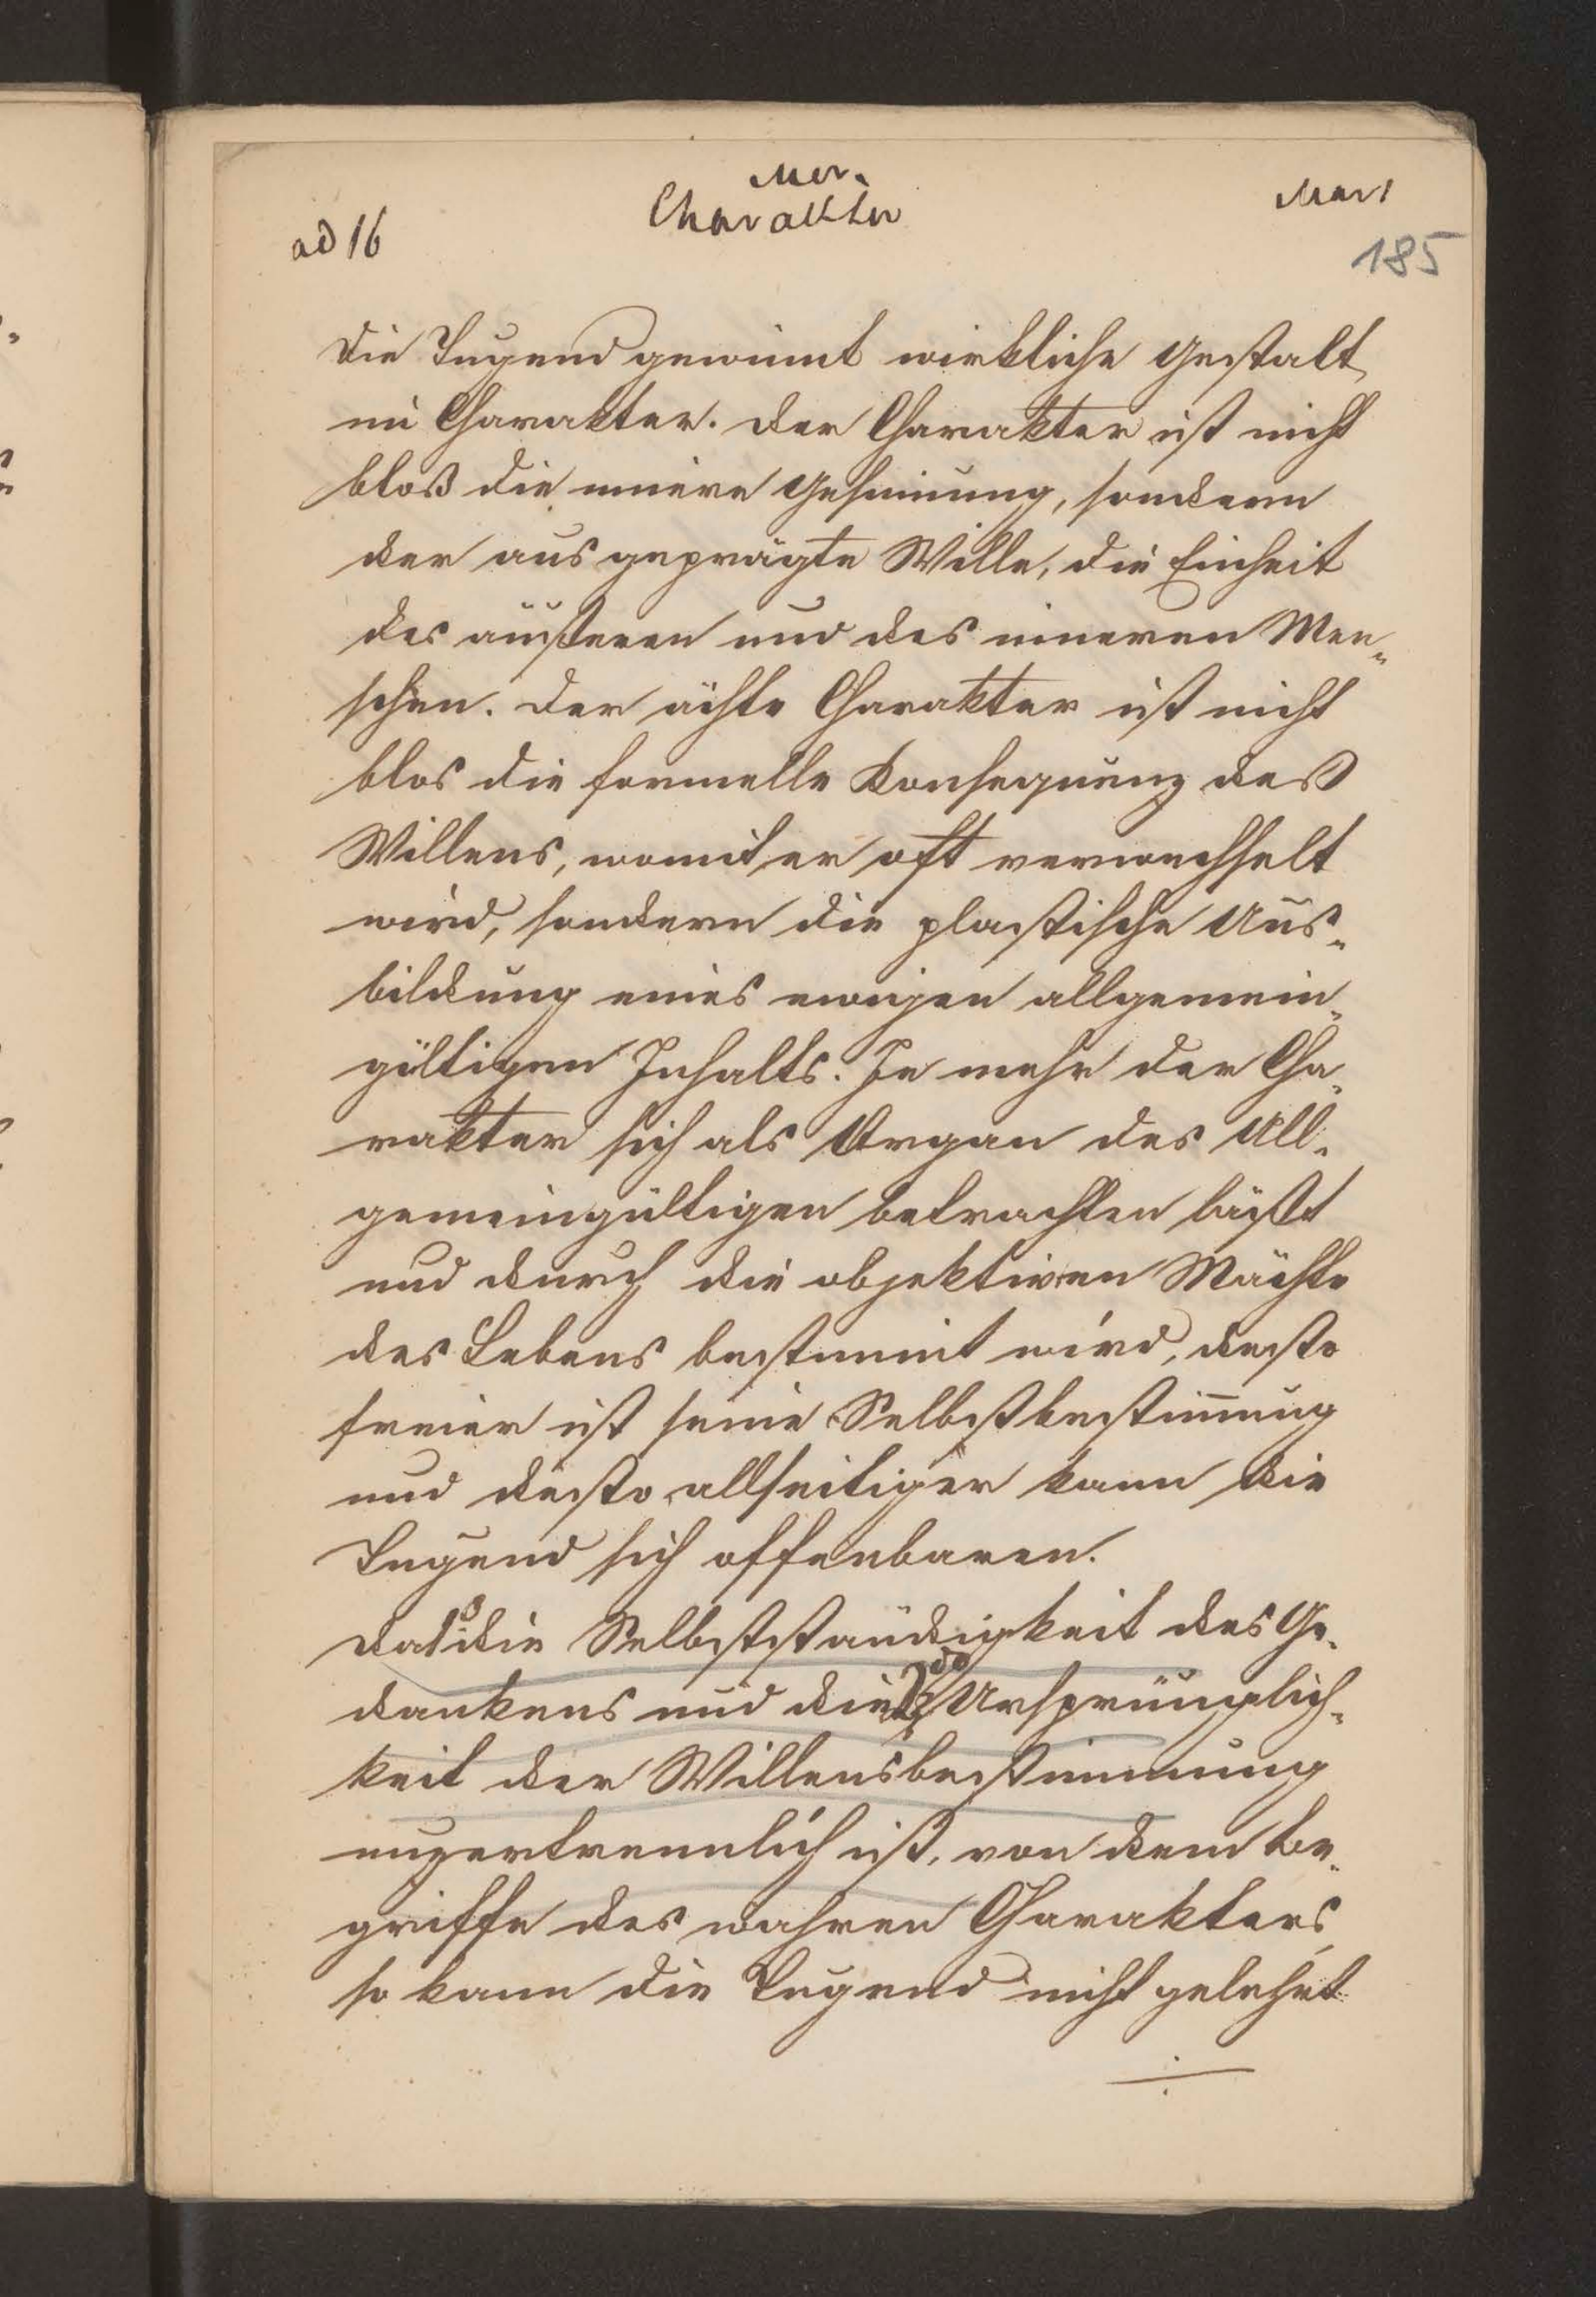 Mor.
Mart
Charakter
ad 16
185
Die Tugend gewinnt wirkliche Gestalt
im Charakter. Der Charakter ist nicht
bloß die innere Gesinnung, sondern
der ausgeprägte Wille, die Einheit
des äußeren und des inneren Men-
schen. Der ächte Charakter ist nicht
blos die formelle Konsequenz deß
Willens, womit er oft verwechselt
wird, sondern die plastische Aus-
bildung eines ewigen allgemein-
gültigen Inhalts. Je mehr der Cha-
rakter sich als Organ des All-
gemeingültigen betrachten läßt
und durch die objektiven Mächte
des Lebens bestimmt wird, desto
freier ist seine Selbstbestimmung
und desto allseitiger kann die
Tugend sich offenbaren.
Da die Selbstständigkeit des Ge-
dankens und die Ursprünglich-
keit der Willensbestimmung
unzertrennlich ist, von dem Be-
griffe des wahren Charakters,
so kann die Tugend nicht gelehrt